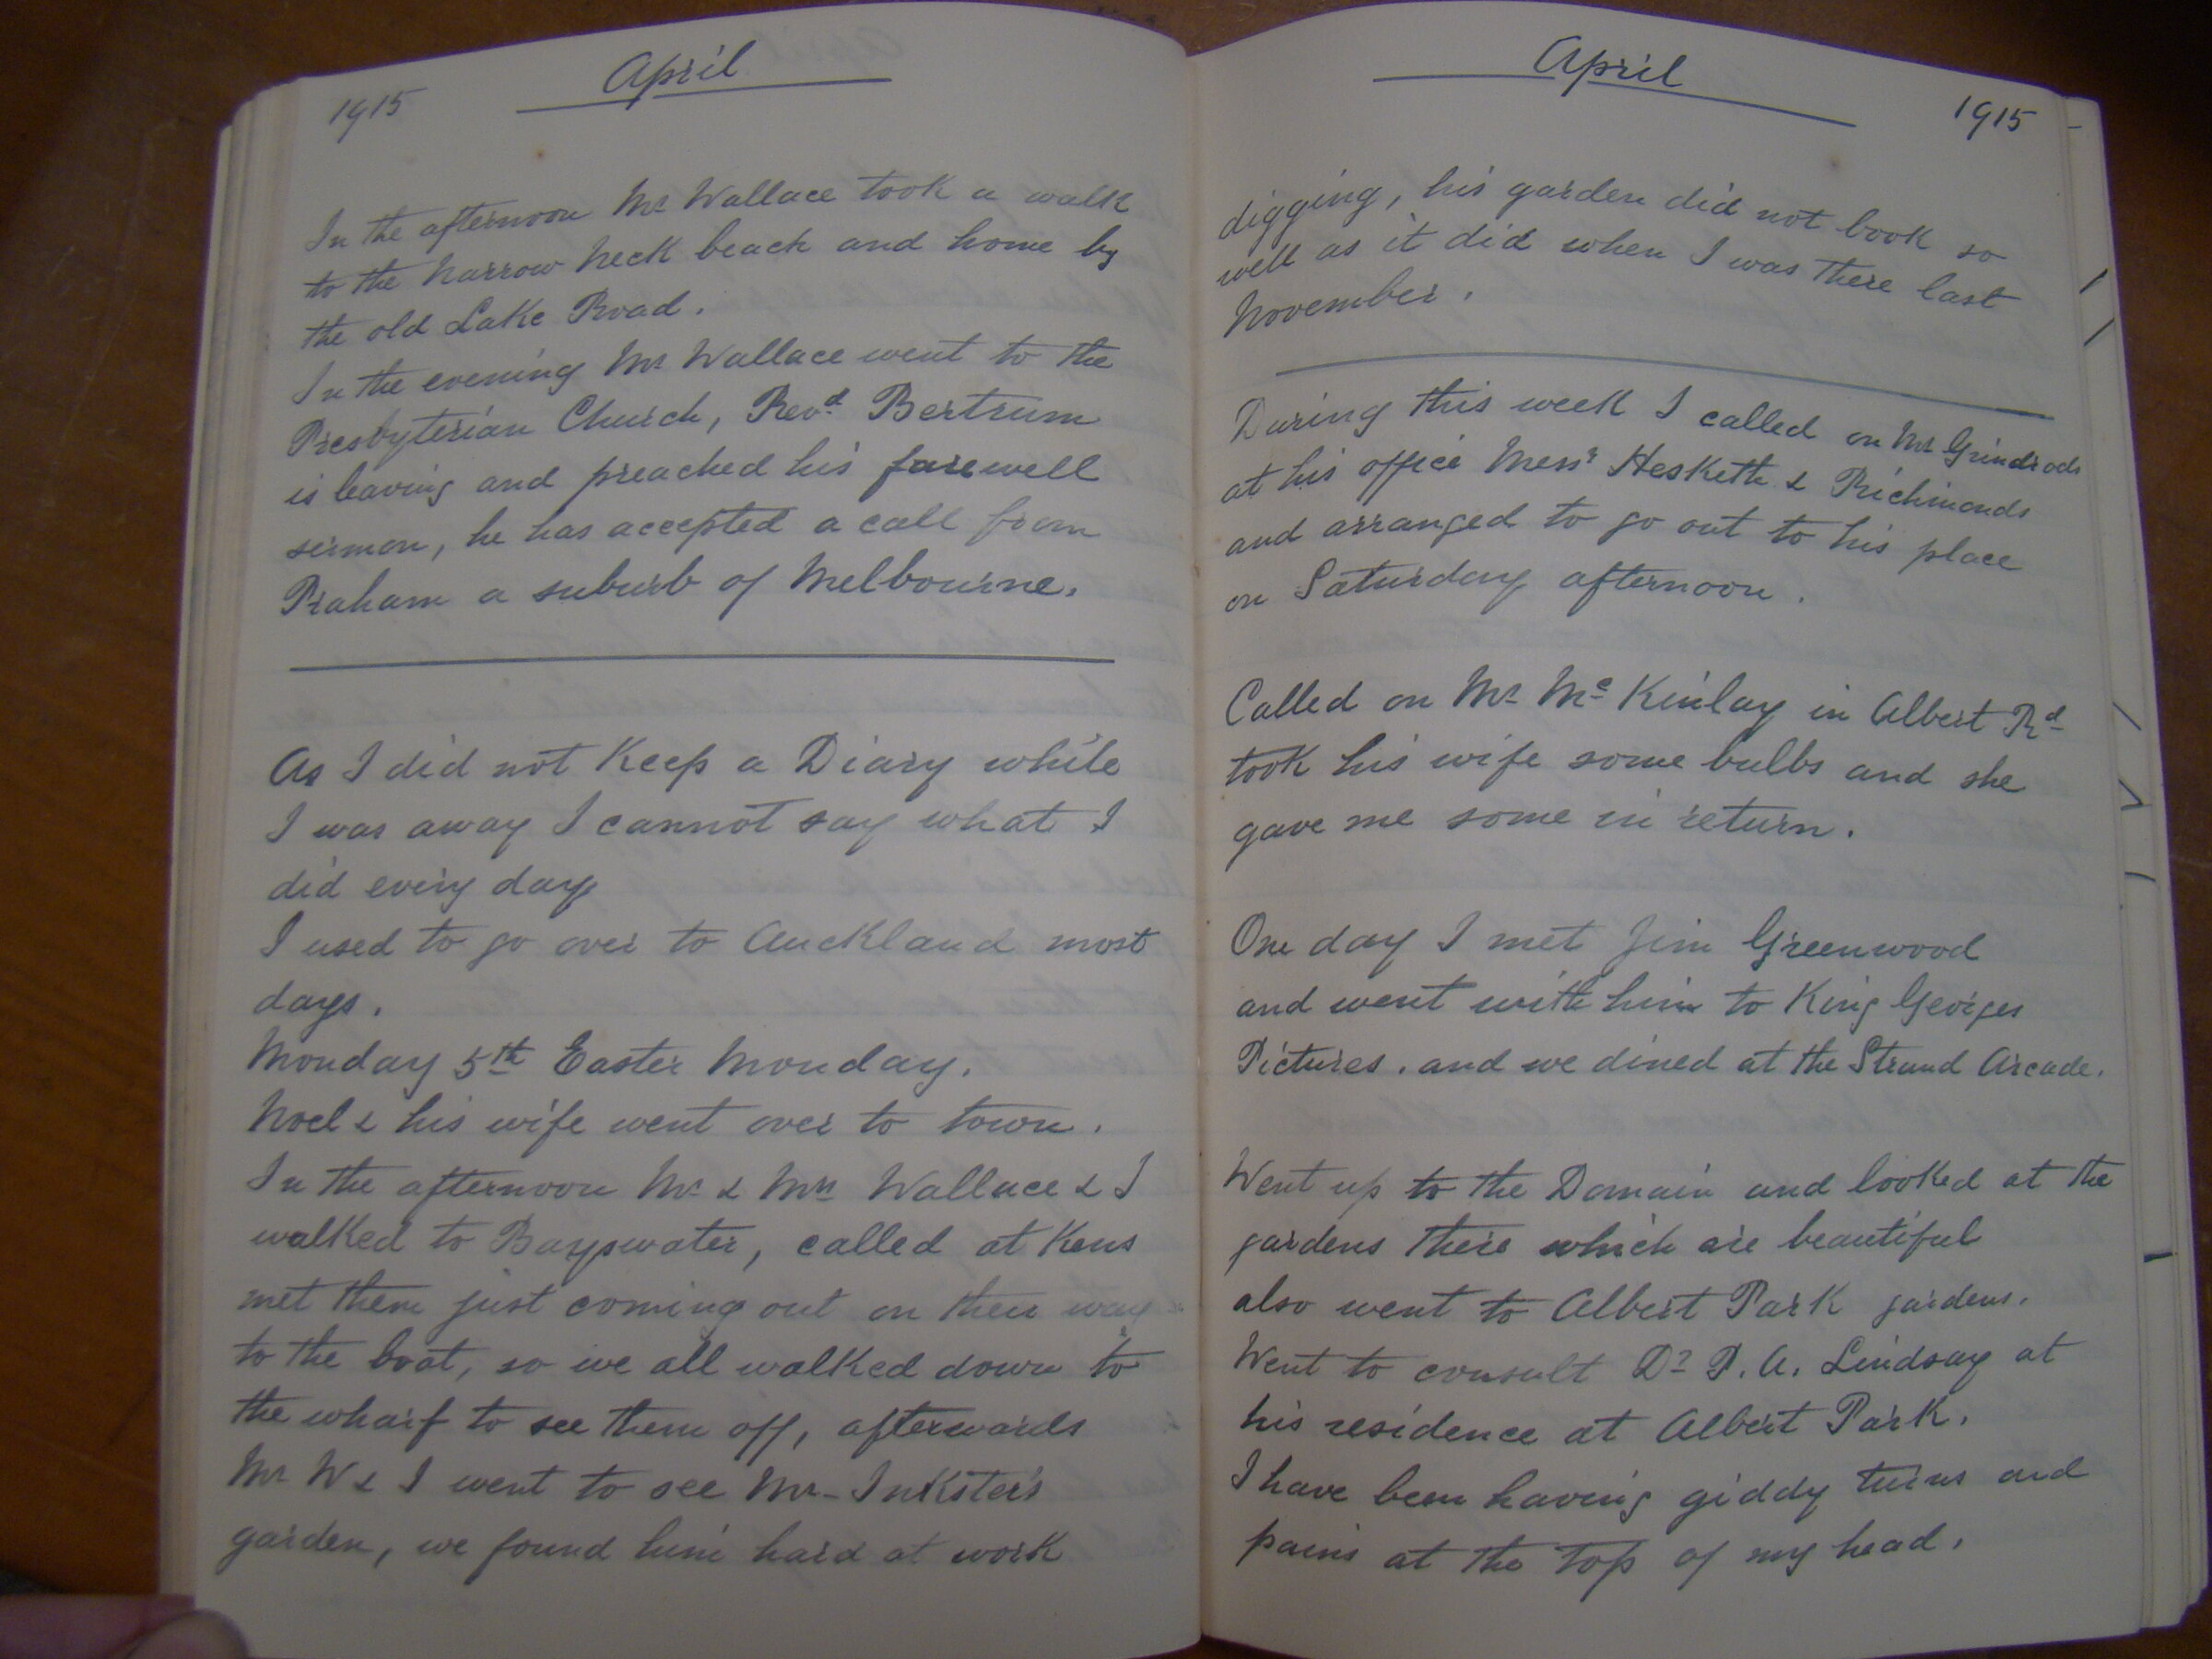 April
1915
In the afternoon Mr Wallace took a walk
to the Narrow Neck beach and home by
the old Lake Road.
In the evening Mr Wallace went to the
Presbyterian Church, Revd. Bertrum
is leaving and preached his farewell
sermon, he has accepted a call from
Praham a suburb of Melbourne.
As I did not Keep a Diary while
I was away I cannot say what I
did every day
I used to go over to Auckland most
days.
Monday 5th Easter Monday.
Noel & his wife went over to town.
In the afternoon Mr & Mrs Wallace & I
walked to Bayswater, called at Kens
met them just coming out on their way
to the boat, so we all walked down to
the wharf to see them off, afterwards
Mr W & I went to see Mr Inksters
garden, we found him hard at work
April
1915
digging, his garden did not look so
well as it did when I was there last
November.
During this week I called on Mr Grindrod
at his office Messrs Hesketh & Richmonds
and arranged to go out to his place
on Saturday afternoon.
Called on Mr McKinlay in Albert Rd
took his wife some bulbs and she
gave me some in return.
One day I met Jim Greenwood
and went with him to King Georges
Pictures. and we dined at the Strand Arcade.
Went up to the Domain and looked at the
gardens there which are beautiful
also went to Albert Park gardens.
Went to consult Dr P. A. Lindsay at
his residence at Albert Park.
I have been having giddy turns and
pains at the top of my head.